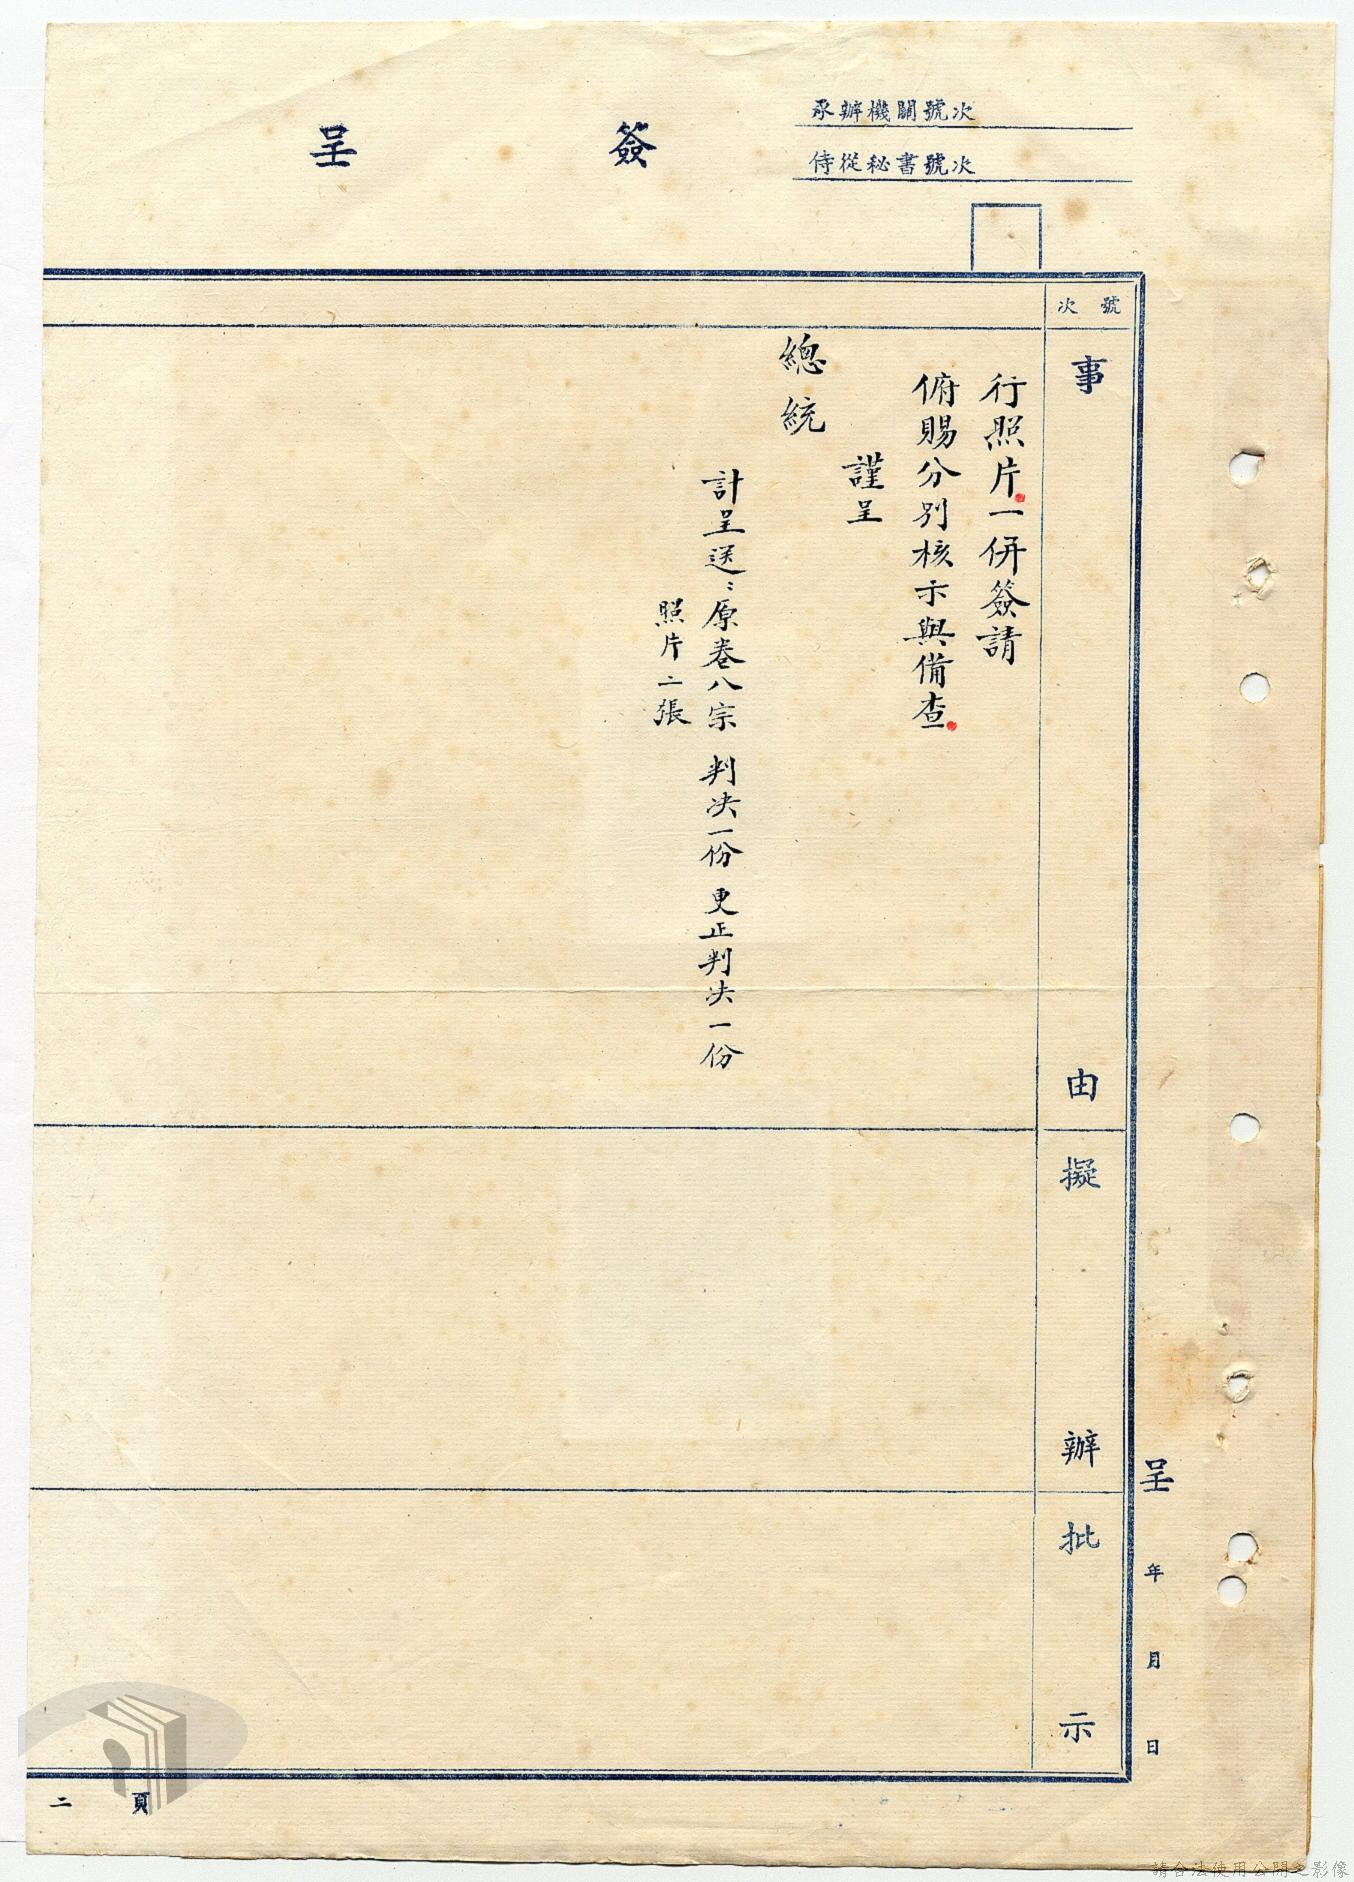 簽呈
承辦機關號次
侍從秘書號次
號次
事由
擬辦
批示
行照片一併簽請
俯賜分別核示與備查
謹呈
總統
計呈送：原卷八宗 判决一份 更正判决一份
照片二張
呈 年 月 日
頁二
請合法使用公開之影像